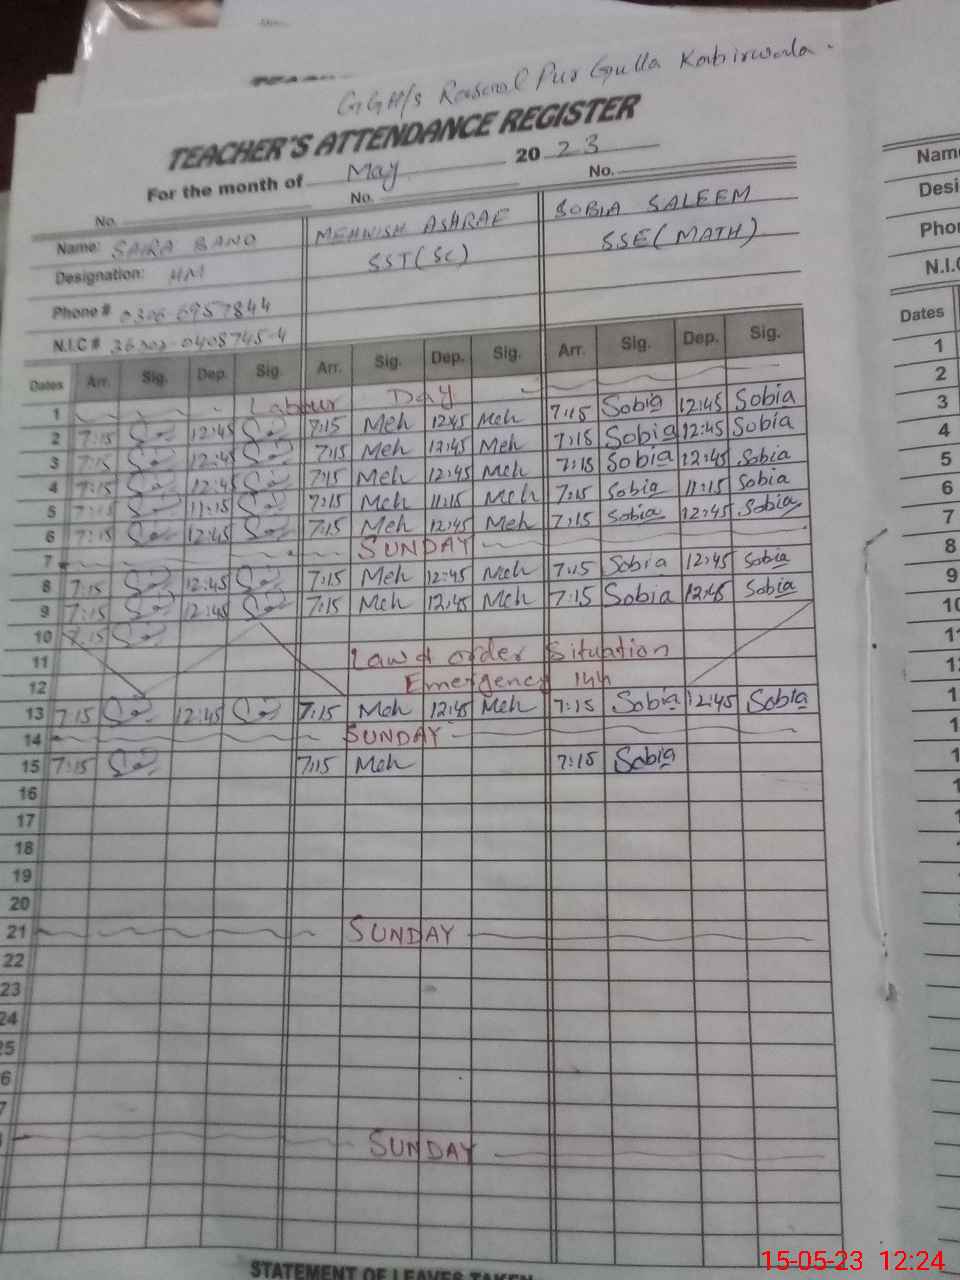 GGH/s Rasool Pur Gulla Kabirwala.
TEACHER'S ATTENDANCE REGISTER
For the month of May 2023
No. No. No.
Name: SAIRA BANO MEHWISH ASHRAF SOBIA SALEEM
Designation: HM SST(Sc) SSE(MATH)
Phone # 0306-6957844
N.I.C # 36302-0408745-4
Dates Arr. Sig. Dep. Sig. Arr. Sig. Dep. Sig. Arr. Sig. Dep. Sig.
1 Labour Day
2 7:15 12:45 7:15 Meh 12:45 Meh 7:15 Sobia 12:45 Sobia
3 7:15 12:45 7:15 Meh 12:45 Meh 7:15 Sobia 12:45 Sobia
4 7:15 12:45 7:15 Meh 12:45 Meh 7:15 Sobia 12:45 Sobia
5 7:15 11:15 7:15 Meh 11:15 Meh 7:15 Sobia 11:15 Sobia
6 7:15 12:45 7:15 Meh 12:45 Meh 7:15 Sobia 12:45 Sobia
7 SUNDAY
8 7:15 12:45 7:15 Meh 12:45 Meh 7:15 Sobia 12:45 Sobia
9 7:15 12:45 7:15 Meh 12:45 Meh 7:15 Sobia 12:45 Sobia
10 7:15
11 Law & order Situation
12 Emergency 144
13 7:15 12:45 7:15 Meh 12:45 Meh 7:15 Sobia 12:45 Sobia
14 SUNDAY
15 7:15 7:15 Meh 7:15 Sobia
16
17
18
19
20
21 SUNDAY
22
23
24
25
6
7
SUNDAY
STATEMENT OF LEAVES TAKEN
Name
Desi
Phon
N.I.C
Dates
1
2
3
4
5
6
7
8
9
10
11
15-05-23 12:24